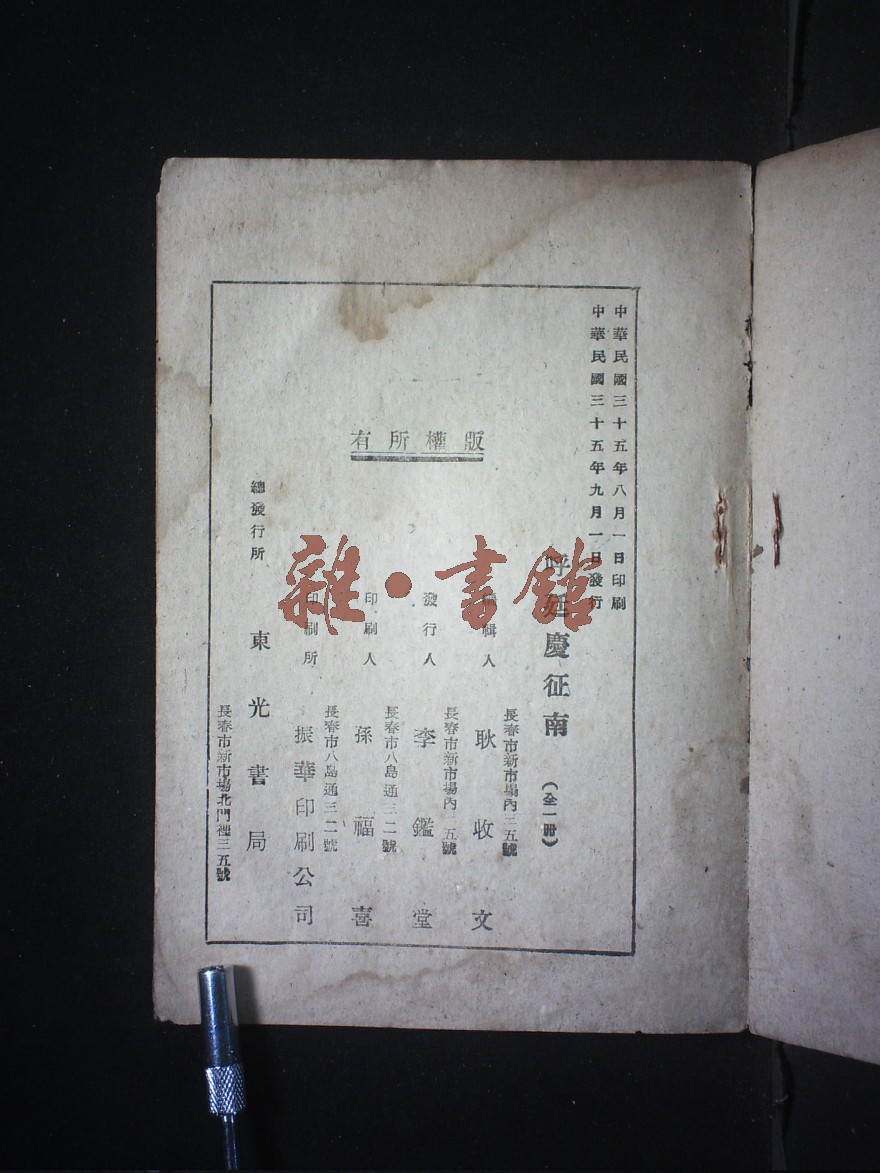 中華民國三十五年八月一日印刷
中華民國三十五年九月一日發行
呼延慶征南（全一冊）
版權所有
長春市新市場內三五號
編輯人 耿收文
長春市新市場內三五號
發行人 李鑑堂
長春市八島通三二號
印刷人 孫福喜
長春市八島通三二號
印刷所 振華印刷公司
總發行所 東光書局
長春市新市場北門裡三五號
雜·書館